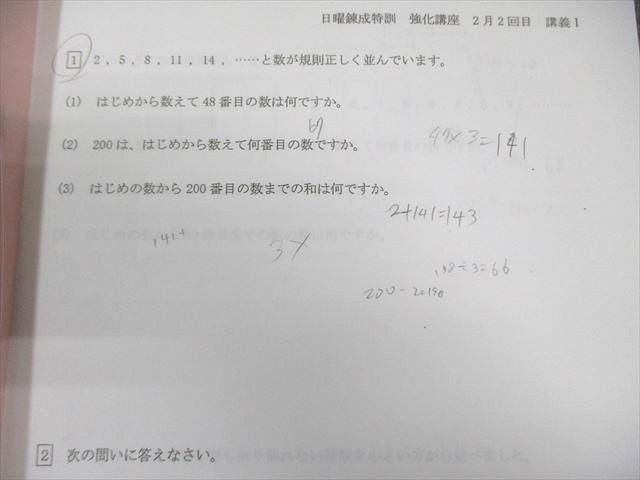 日曜錬成特訓 強化講座 2月2回目 講義1
1 2，5，8，11，14，……と数が規則正しく並んでいます。
(1) はじめから数えて48番目の数は何ですか。
67
(2) 200は、はじめから数えて何番目の数ですか。
47×3=141
(3) はじめの数から200番目の数までの和は何ですか。
2+141=143
141+
3×
198÷3=66
200-2=198
2 次の問いに答えなさい。